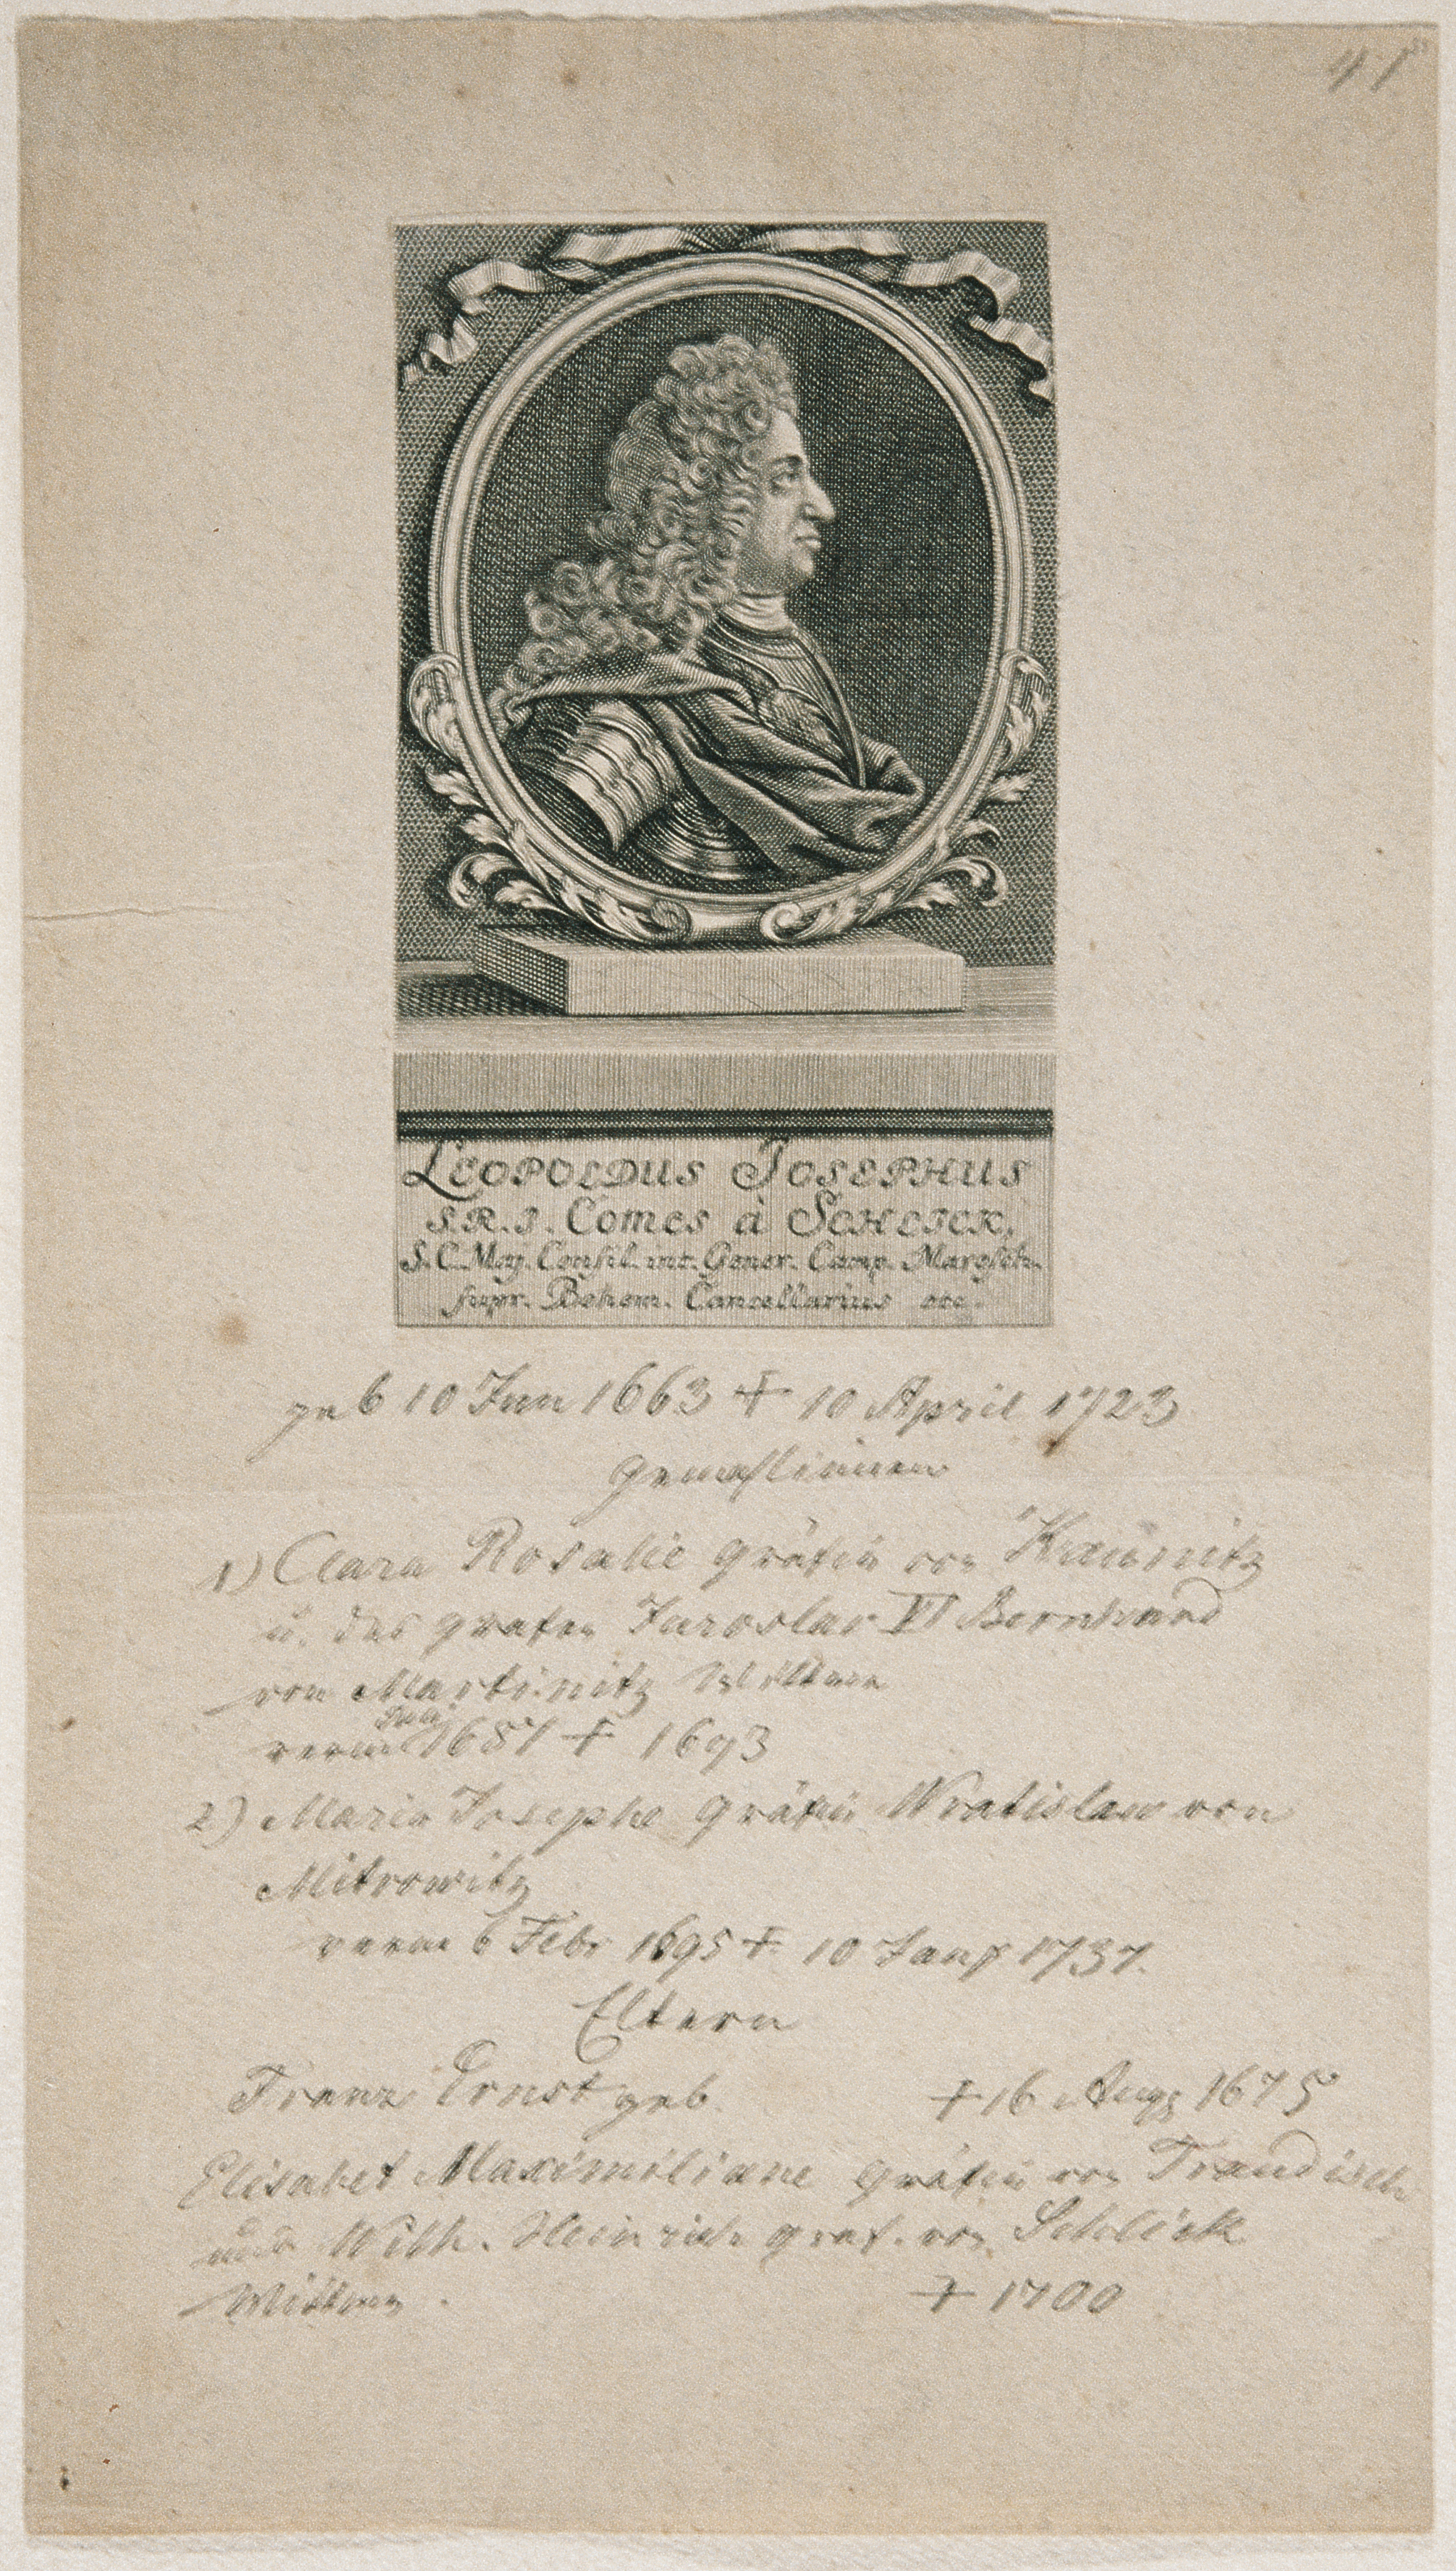 41
LEOPOLDUS JOSEPHUS
S.R.I. Comes à SCHLICK,
S.C. Maj. Consil. int. Gener. Camp. Maresch.
supr. Bohem. Cancellarius etc.
geb 10 Jun 1663 † 10 April 1723
Gemahlinnen
1) Clara Rosalie Gräfin von Kaunitz
u. des Grafen Jaroslav VI Bernhard
von Martinitz Wittwe
verm 1687 † 1693
2) Maria Josepha Gräfin Wratislaw von
Mitrowitz
verm 6 Febr 1695 † 10 1737.
Eltern
Franz Ernst geb. † 16 Aug 1675
Elisabet Maximiliane Gräfin von
und Wilh. Heinrich Graf. von Schlick
Wittwe. † 1700